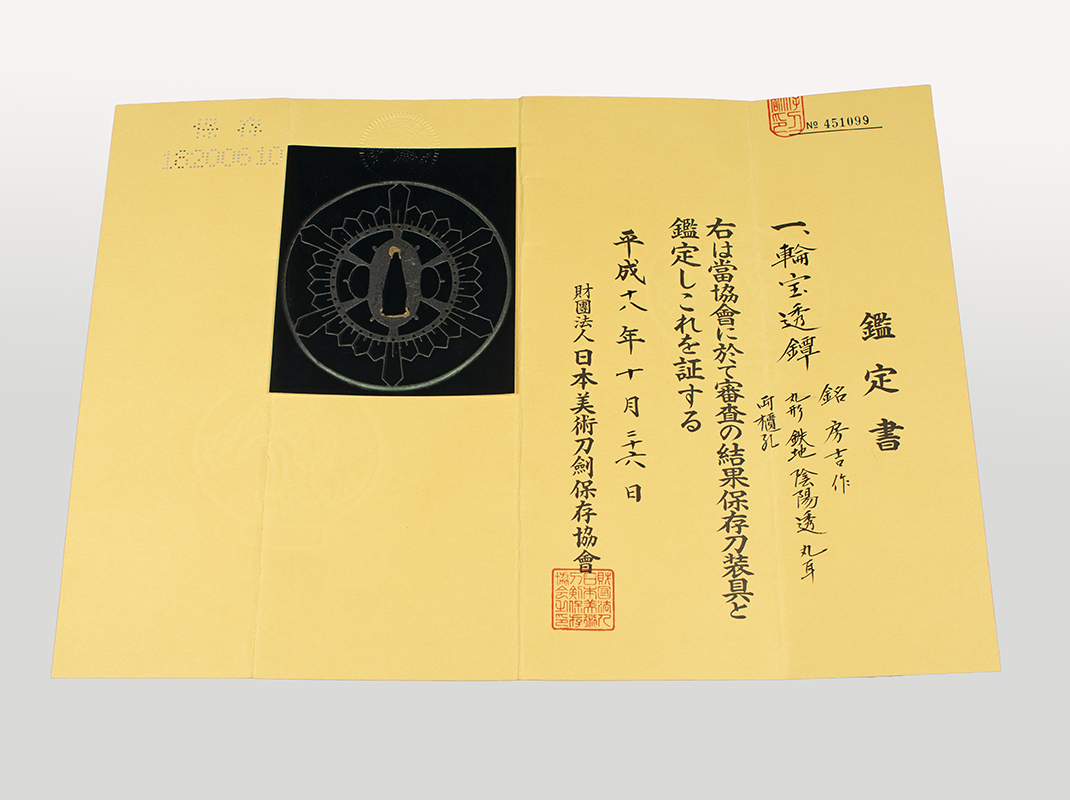 № 451099
鑑定書
一、輪宝透鐔
銘 房吉作
丸形 鉄地 陰陽透 丸耳
両櫃孔
右は當協會に於て審査の結果保存刀装具と
鑑定しこれを証する
平成十八年十月二十六日
財團法人日本美術刀劍保存協會
財團法人
日本美術
刀剣保存
協会之印
保存
18200610